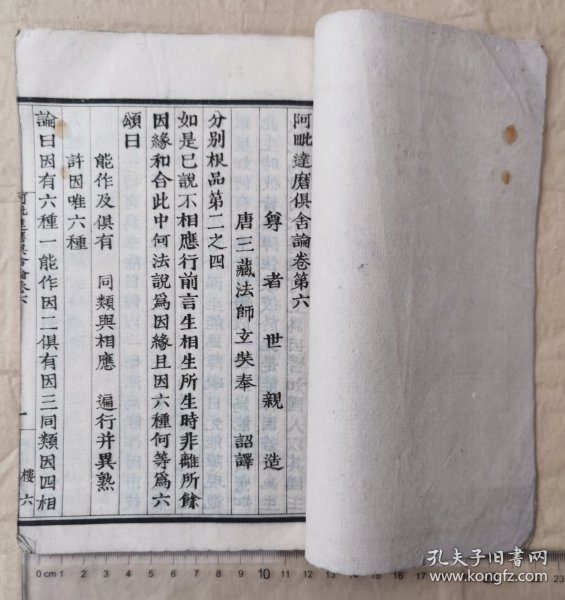 阿毗達磨俱舍論卷第六
尊者世親造
唐三藏法師玄奘奉 詔譯
分别根品第二之四
如是已說不相應行前言生相生所生時非離所餘
因緣和合此中何法說爲因緣且因六種何等爲六
頌曰
能作及俱有 同類與相應 遍行并異熟
許因唯六種
論曰因有六種一能作因二俱有因三同類因四相
一
樓六
0 cm 1 2 3 4 5 6 7 8 9 10 11 12 13 14
23
孔夫子旧书网
www.kongfz.com